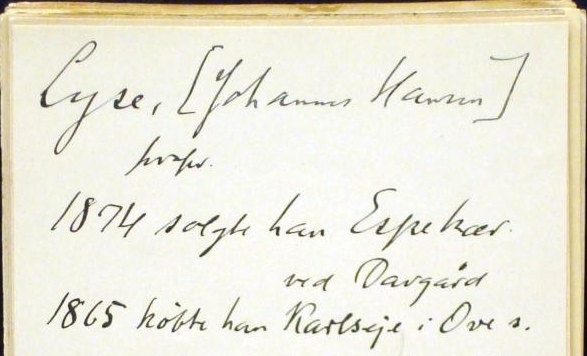 Lyse, [Johannes Hansen]
propr.
1874 solgte han Espekær
ved Davgård
1865 købte han Karlseje i Ove s.